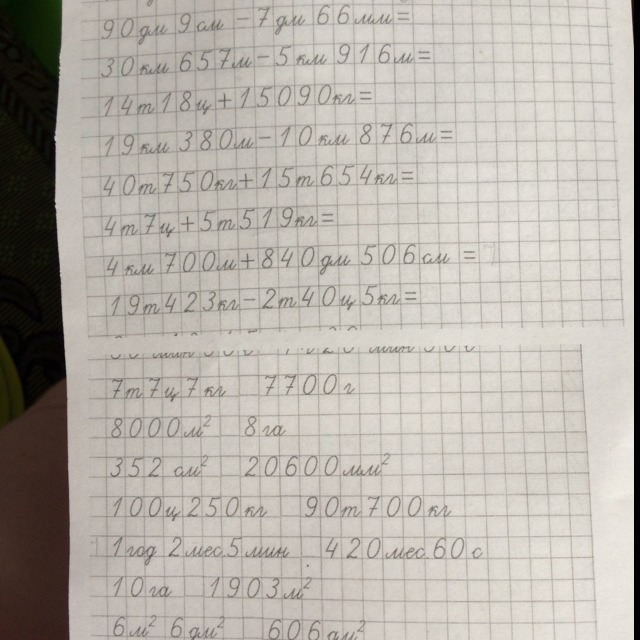 90дм 9см – 7дм 66мм=
30км 657м – 5км 916м=
14т 18ц + 15090кг=
19км 380м – 10км 876м=
40т 750кг + 15т 654кг=
4т 7ц + 5т 519кг=
4км 700м + 840дм 506см =
19т 423кг – 2т 40ц 5кг=
7т 7ц 7кг 7700г
8000м² 8га
352 см² 20600мм²
100ц 250кг 90т 700кг
1год 2мес. 5мин 420мес. 60с
10га 1903м²
6м² 6дм² 606дм²